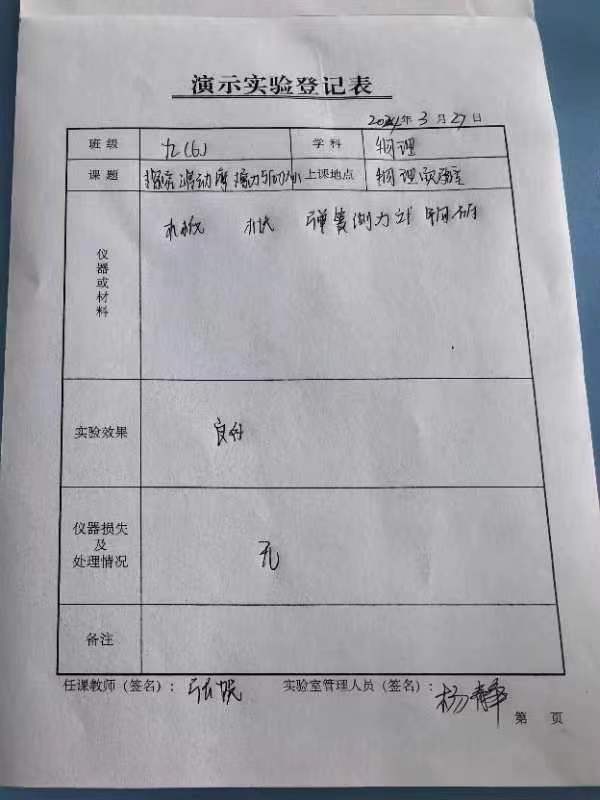 演示实验登记表
2024年3月27日
班级 九(6) 学科 物理
课题 探究滑动摩擦力与 大小 上课地点 物理实验室
仪器或材料 木板 木块 弹簧测力计 钩码
实验效果 良好
仪器损失及处理情况 无
备注
任课教师(签名): 张 实验室管理人员(签名): 杨静
第 页